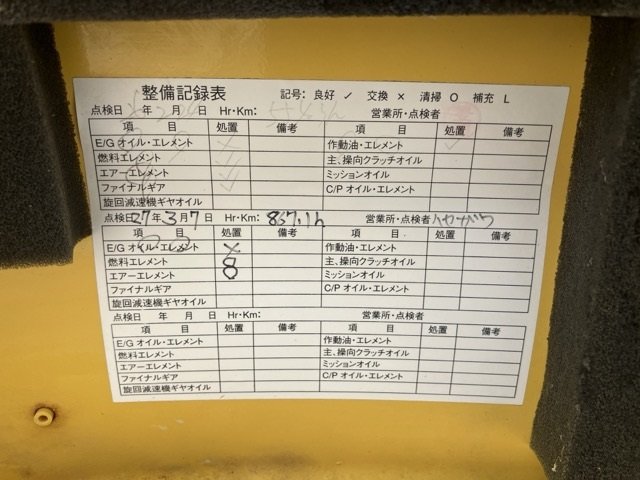 整備記録表 記号: 良好 ✓ 交換 × 清掃 O 補充 L
点検日 年 月 日 Hr・Km: 営業所・点検者
項 目 処置 備考 項 目 処置 備考
E/G オイル・エレメント 作動油・エレメント ✓
燃料エレメント ✓ 主、操向クラッチオイル
エアーエレメント ✓ ミッションオイル
ファイナルギア ✓ C/P オイル・エレメント
旋回減速機ギヤオイル
点検日 27 年 3 月 7 日 Hr・Km: 857.1h 営業所・点検者
項 目 処置 備考 項 目 処置 備考
E/G オイル・エレメント × 作動油・エレメント
燃料エレメント O 主、操向クラッチオイル
エアーエレメント O ミッションオイル
ファイナルギア C/P オイル・エレメント
旋回減速機ギヤオイル
点検日 年 月 日 Hr・Km: 営業所・点検者
項 目 処置 備考 項 目 処置 備考
E/G オイル・エレメント 作動油・エレメント
燃料エレメント 主、操向クラッチオイル
エアーエレメント ミッションオイル
ファイナルギア C/P オイル・エレメント
旋回減速機ギヤオイル